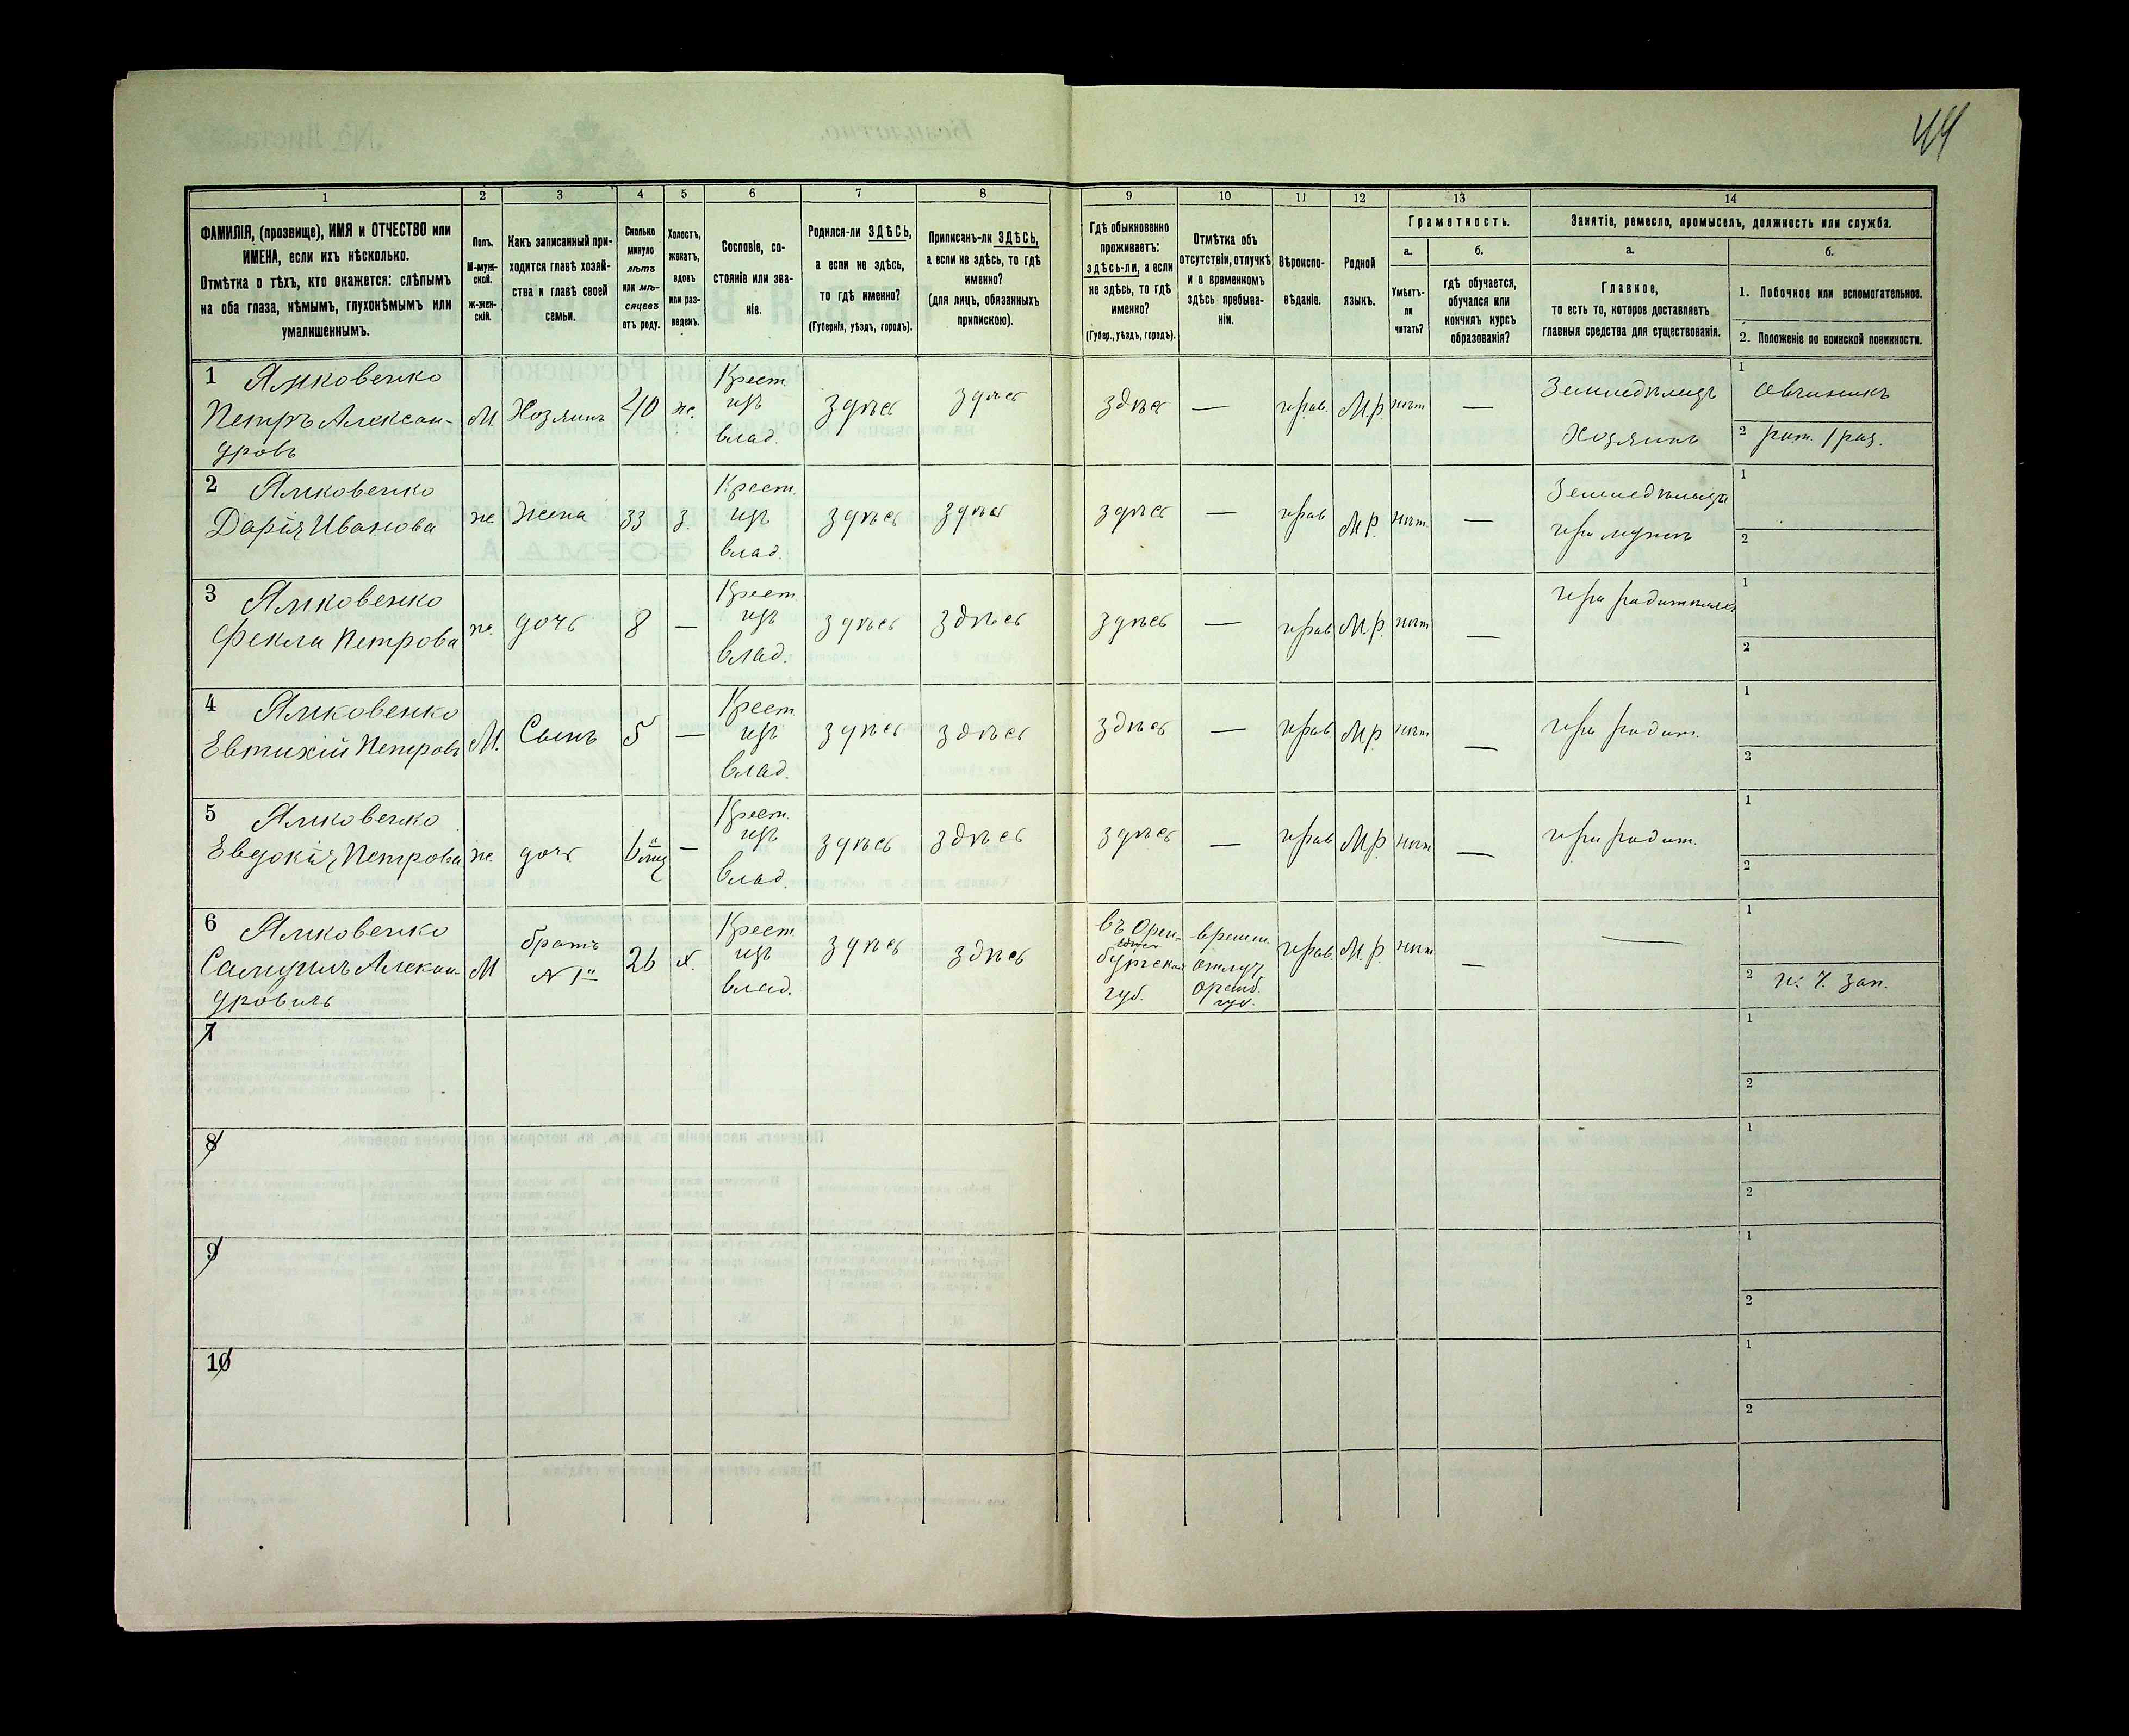 44
1 2 3 4 5 6 7 8 9 10 11 12 13 14
ФАМИЛІЯ, (прозвище), ИМЯ и ОТЧЕСТВО или
ИМЕНА, если ихъ нѣсколько.
Отмѣтка о тѣхъ, кто окажется: слѣпымъ
на оба глаза, нѣмымъ, глухонѣмымъ или
умалишеннымъ.
Полъ.
М-муж-
ской.
Ж-жен-
скій.
Какъ записанный при-
ходится главѣ хозяй-
ства и главѣ своей
семьи.
Сколько
минуло
лѣтъ
или мѣ-
сяцевъ
отъ роду.
Холостъ,
женатъ,
вдовъ
или раз-
веденъ.
Сословіе, со-
стояніе или зва-
ніе.
Родился-ли ЗДѢСЬ,
а если не здѣсь,
то гдѣ именно?
(Губернія, уѣздъ, городъ).
Приписанъ-ли ЗДѢСЬ,
а если не здѣсь, то гдѣ
именно?
(для лицъ, обязанныхъ
припискою).
Гдѣ обыкновенно
проживаетъ:
здѣсь-ли, а если
не здѣсь, то гдѣ
именно?
(Губер., уѣздъ, городъ).
Отмѣтка объ
отсутствіи, отлучкѣ
и о временномъ
здѣсь пребыва-
ніи.
Вѣроиспо-
вѣданіе.
Родной
языкъ.
Грамотность.
а.
Умѣетъ-
ли
читать?
б.
гдѣ обучается,
обучался или
кончилъ курсъ
образованія?
Занятіе, ремесло, промыселъ, должность или служба.
а.
Главное,
то есть то, которое доставляетъ
главныя средства для существованія.
б.
1. Побочное или вспомогательное.
2. Положеніе по воинской повинности.
1 Ямковенко
Петръ Алексан-
дровъ
М Хозяинъ 40 ж.
Крест.
изъ
влад.
здѣсь здѣсь здѣсь — прав. М.р. нѣтъ —
Земледѣлецъ
Хозяинъ
1 овчинникъ
2 рат. 1 раз.
2 Ямковенко
Дарія Иванова
ж Жена 33 з.
Крест.
изъ
влад.
здѣсь здѣсь здѣсь — прав М.р. нѣт. —
при мужѣ
1
2
3 Ямковенко
Фекла Петрова
ж. дочь 8 —
Крест
изъ
влад.
здѣсь здѣсь здѣсь — прав М.р. нѣт —
1
2
4 Ямковенко
Евтихій Петровъ
М. Сынъ 5 —
Крест.
изъ
влад.
здѣсь здѣсь здѣсь — прав. М.р. нѣт —
при родит.
1
2
5 Ямковенко
Евдокія Петрова
ж. дочь —
Крест.
изъ
влад.
здѣсь здѣсь здѣсь — прав М.р. нѣт —
при родит.
1
2
6 Ямковенко
М
братъ
26 х.
Крест.
изъ
влад.
здѣсь здѣсь
въ Орен-
бургской
губ.
прав. М.р. нѣт — —
1
2
7
1
2
8
1
2
9
1
2
10
1
2